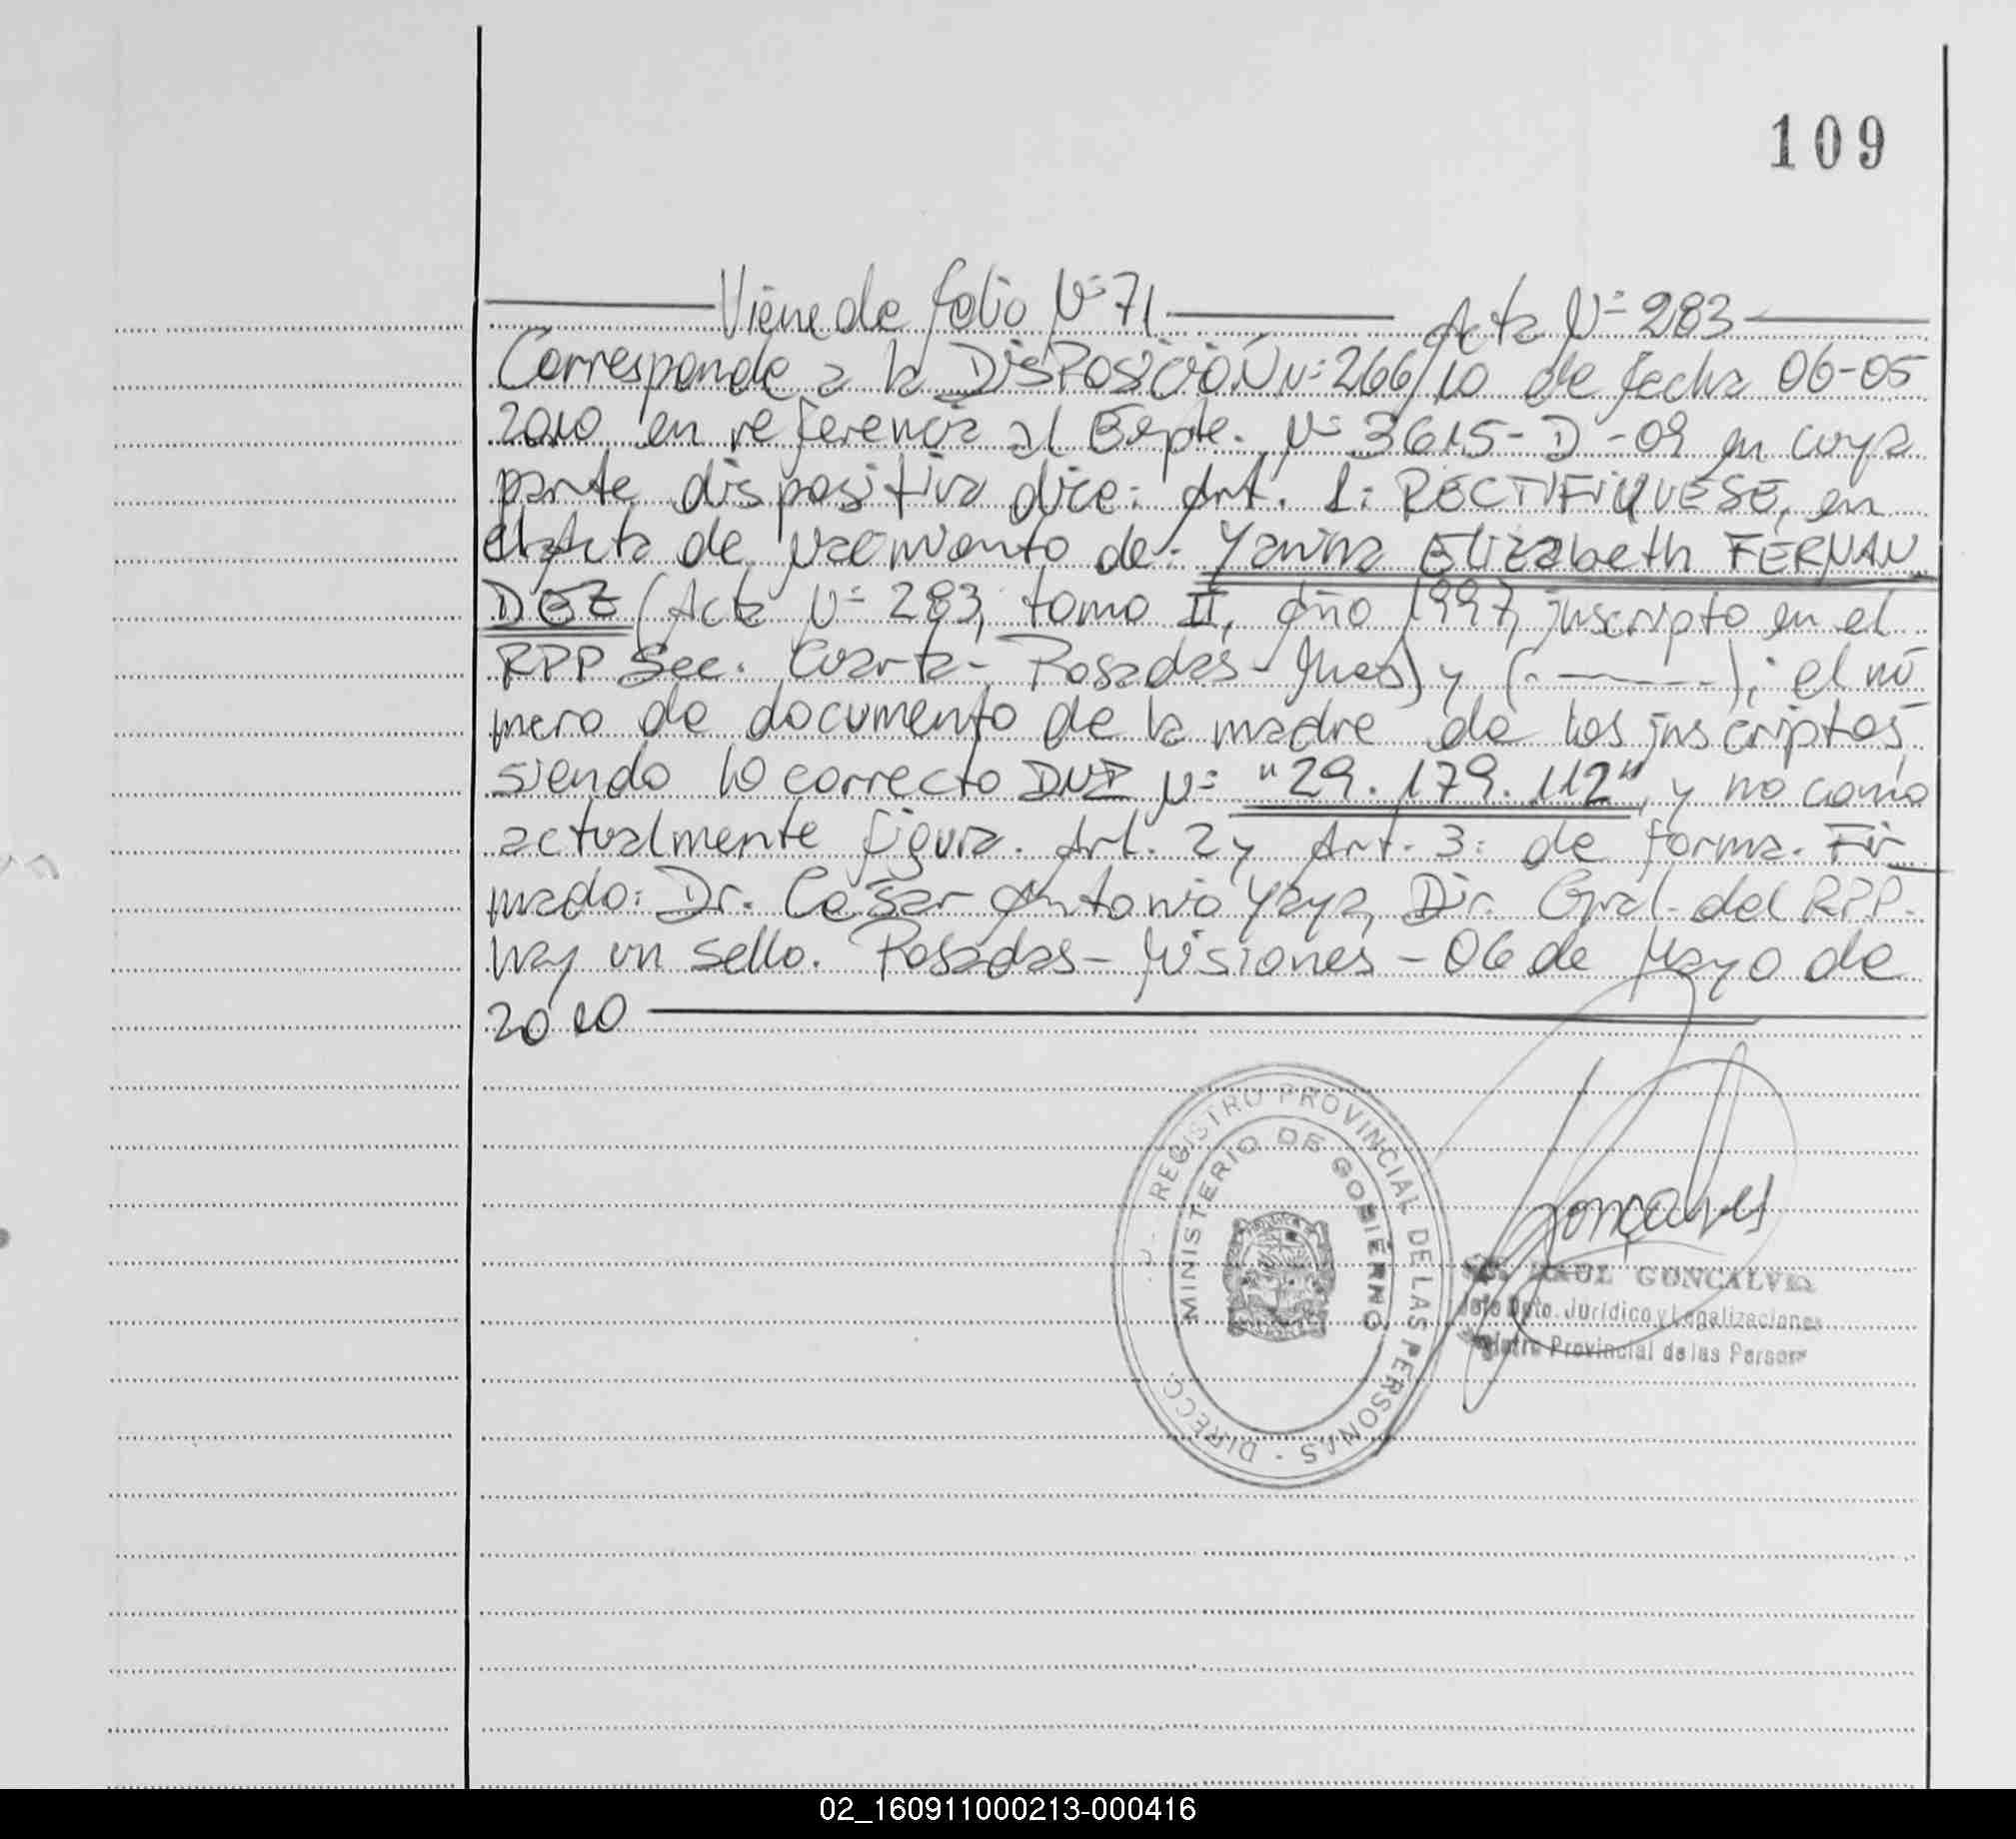 109
Viene de folio Nº 71 Acta Nº 283
Corresponde a la DISPOSICIÓN Nº 266/10 de fecha 06-05
2010 en referencia al Expte. Nº 3615-D-09 en cuya
parte dispositiva dice: Art. 1: RECTIFIQUESE, en
el Acta de nacimiento de: Yanina Elizabeth FERNAN
DEZ (Acta Nº 283, tomo II, Año 1997, inscripto en el
RPP Sec. Cuarta - Posadas - Mnes) y (. ———.); el nú
mero de documento de la madre de los inscriptos,
siendo lo correcto DNI Nº "29.179.112", y no como
actualmente figura. Art. 2 y Art. 3: de forma. Fir
mado: Dr. César Antonio Yaya, Dir. Gral. del RPP.
Hay un sello. Posadas - Misiones - 06 de Mayo de
2010
REGISTRO PROVINCIAL DE LAS PERSONAS - DIRECC.
MINISTERIO DE GOBIERNO
Gonçalves
RAUL GONCALVES
Jefe Dpto. Jurídico y Legalizaciones
Provincial de las Person
02_160911000213-000416